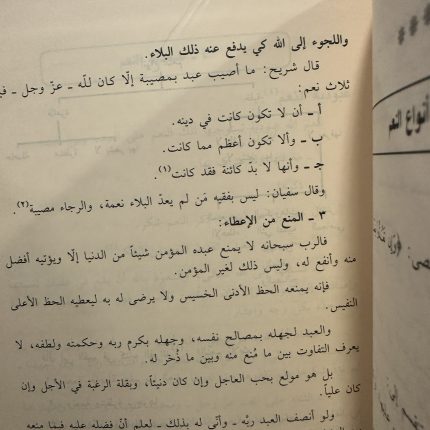 واللجوء إلى الله كي يدفع عنه ذلك البلاء.
قال شريح: ما أصيب عبد بمصيبة إلّا كان للّه ـ عزّ وجل ـ
ثلاث نعم:
أ ـ أن لا تكون كانت في دينه.
ب ـ وألا تكون أعظم مما كانت.
جـ ـ وأنها لا بدّ كائنة فقد كانت(١).
وقال سفيان: ليس بفقيه مَن لم يعدّ البلاء نعمة، والرجاء مصيبة(٢).
٣ ـ المنع من الإعطاء:
فالرب سبحانه لا يمنع عبده المؤمن شيئاً من الدنيا إلّا ويؤتيه أفضل
منه وأنفع له، وليس ذلك لغير المؤمن.
فإنه يمنعه الحظ الأدنى الخسيس ولا يرضى له به ليعطيه الحظ الأعلى
النفيس.
والعبد لجهله بمصالح نفسه، وجهله بكرم ربه وحكمته ولطفه، لا
يعرف التفاوت بين ما مُنع منه وبين ما ذُخر له.
بل هو مولع بحب العاجل وإن كان دنيئاً، وبقلة الرغبة في الآجل وإن
كان علياً.
ولو أنصف العبد ربّه ـ وأنّى له بذلك ـ لعلم أنّ فضله عليه فيما منعه
أنواع النعم